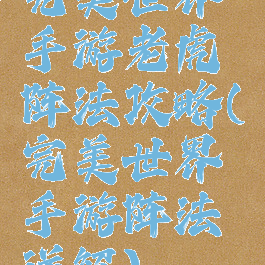 完美世界
手游老虎
阵法攻略(
完美世界
手游阵法
详解)